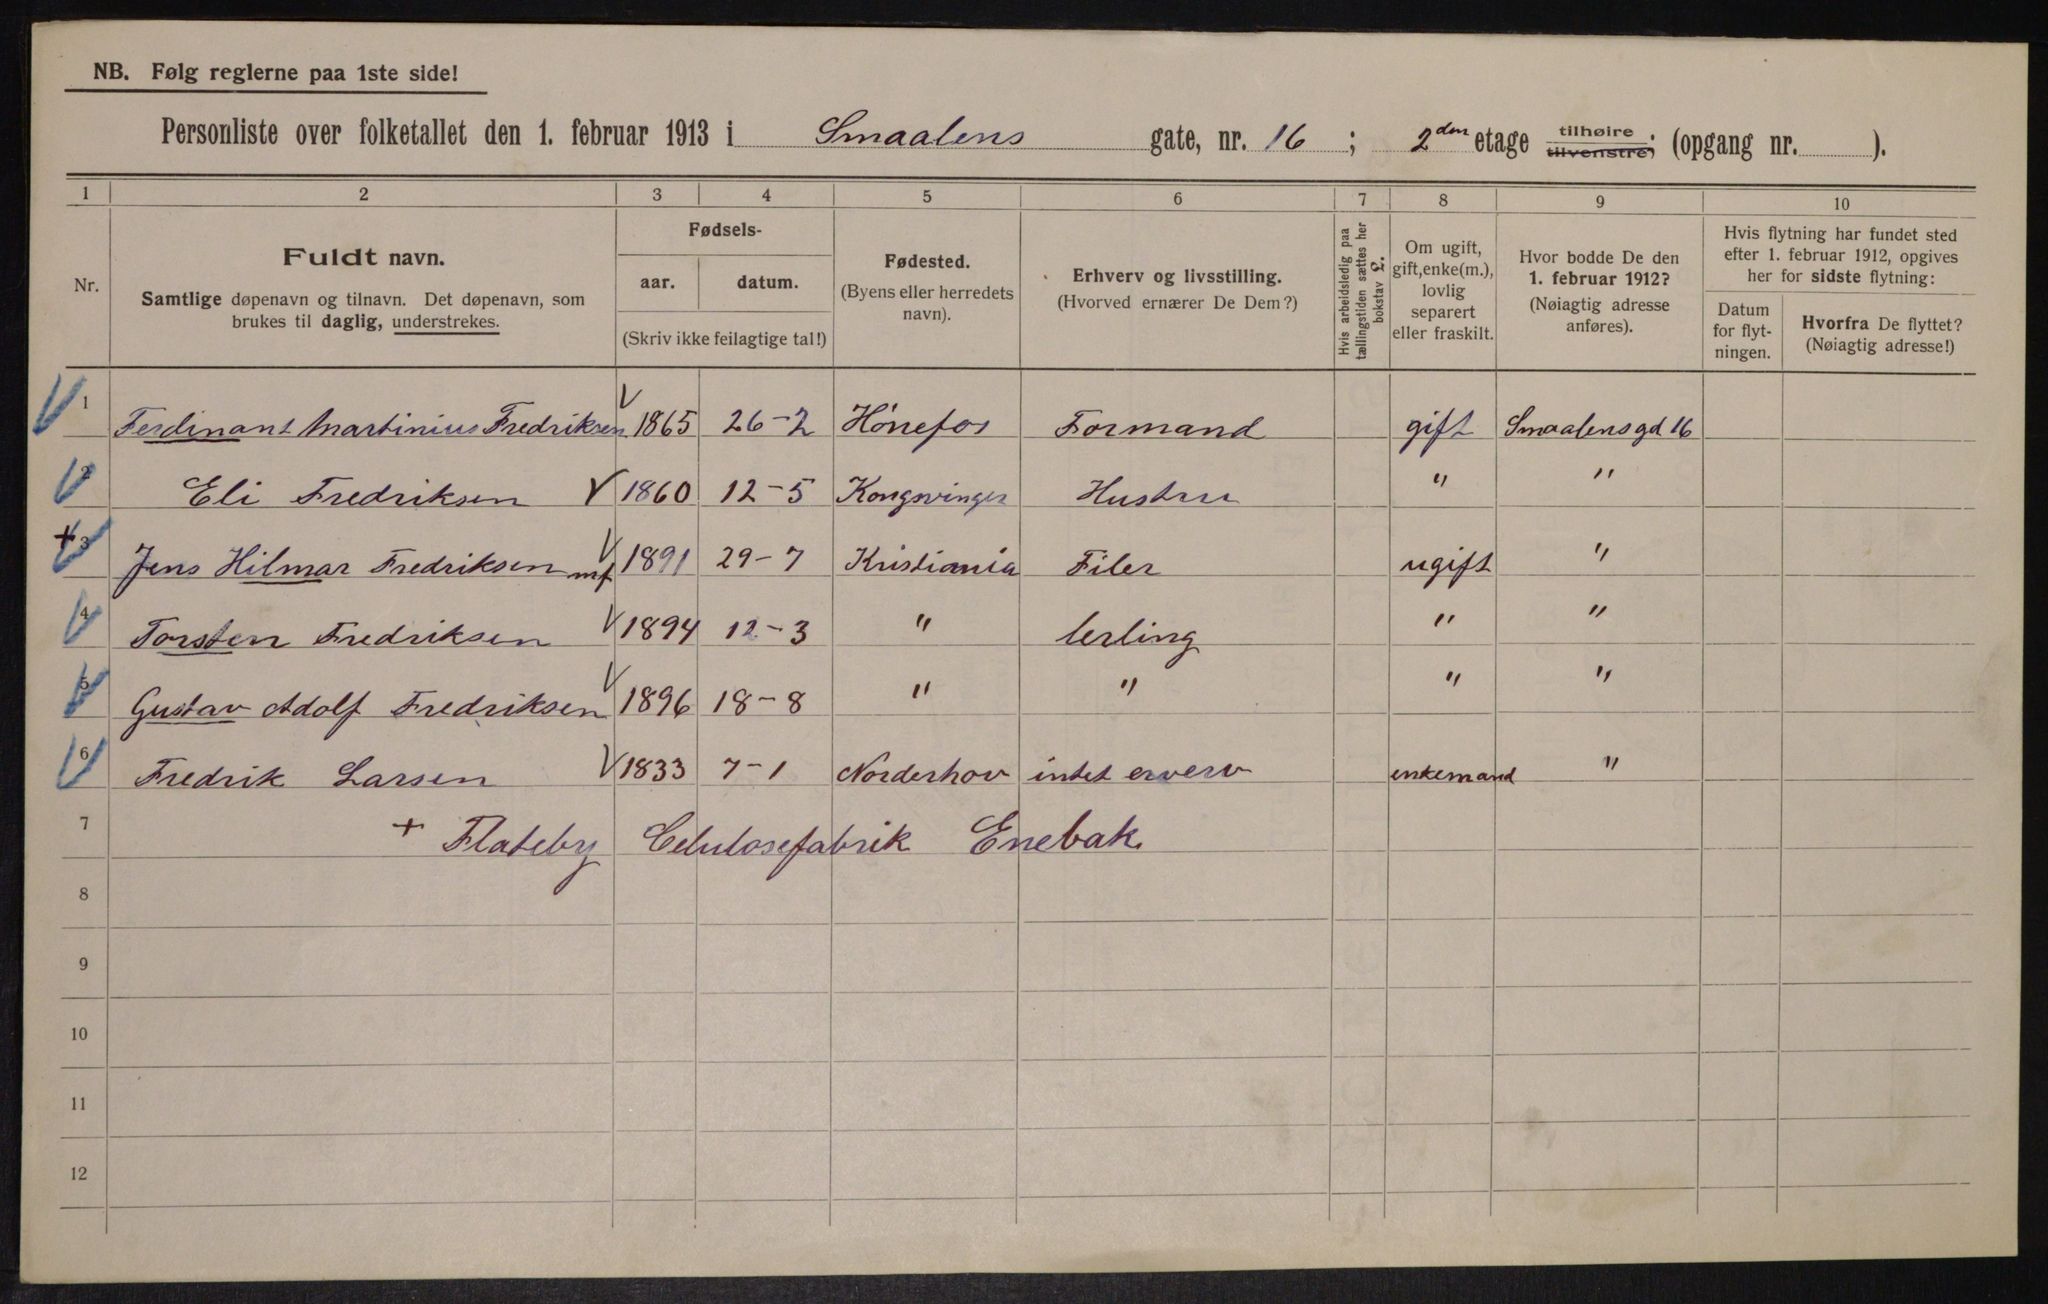 NB. Følg reglerne paa 1ste side!
Personliste over folketallet den 1. februar 1913 i Smaalens gate, nr. 16 ; 2den etage tilhøire tilvenstre; (opgang nr. ).
1 2 3 4 5 6 7 8 9 10
Nr.
Fuldt navn.
Samtlige døpenavn og tilnavn. Det døpenavn, som
brukes til daglig, understrekes.
Fødsels-
aar. datum.
(Skriv ikke feilagtige tal!)
Fødested.
(Byens eller herredets
navn).
Erhverv og livsstilling.
(Hvorved ernærer De Dem?)
Hvis arbeidsledig paa
tællingstiden sættes her
bokstav L.
Om ugift,
gift, enke(m.),
lovlig
separert
eller fraskilt.
Hvor bodde De den
1. februar 1912?
(Nøiagtig adresse
anføres).
Hvis flytning har fundet sted
efter 1. februar 1912, opgives
her for sidste flytning:
Datum
for flyt-
ningen.
Hvorfra De flyttet?
(Nøiagtig adresse!)
1 Ferdinant Martinius Fredriksen 1865 26-2 Hönefos Formand gift Smaalensgd 16
2 Eli Fredriksen 1860 12-5 Kongsvinger Hustru " "
+ 3 Jens Hilmar Fredriksen mf 1891 29-7 Kristiania Filer ugift "
4 Torsten Fredriksen 1894 12-3 " lerling " "
5 Gustav Adolf Fredriksen 1896 18-8 " " " "
6 Fredrik Larsen 1833 7-1 Norderhov intet erverv enkemand "
7 + Flateby Celulosefabrik Enebak
8
9
10
11
12